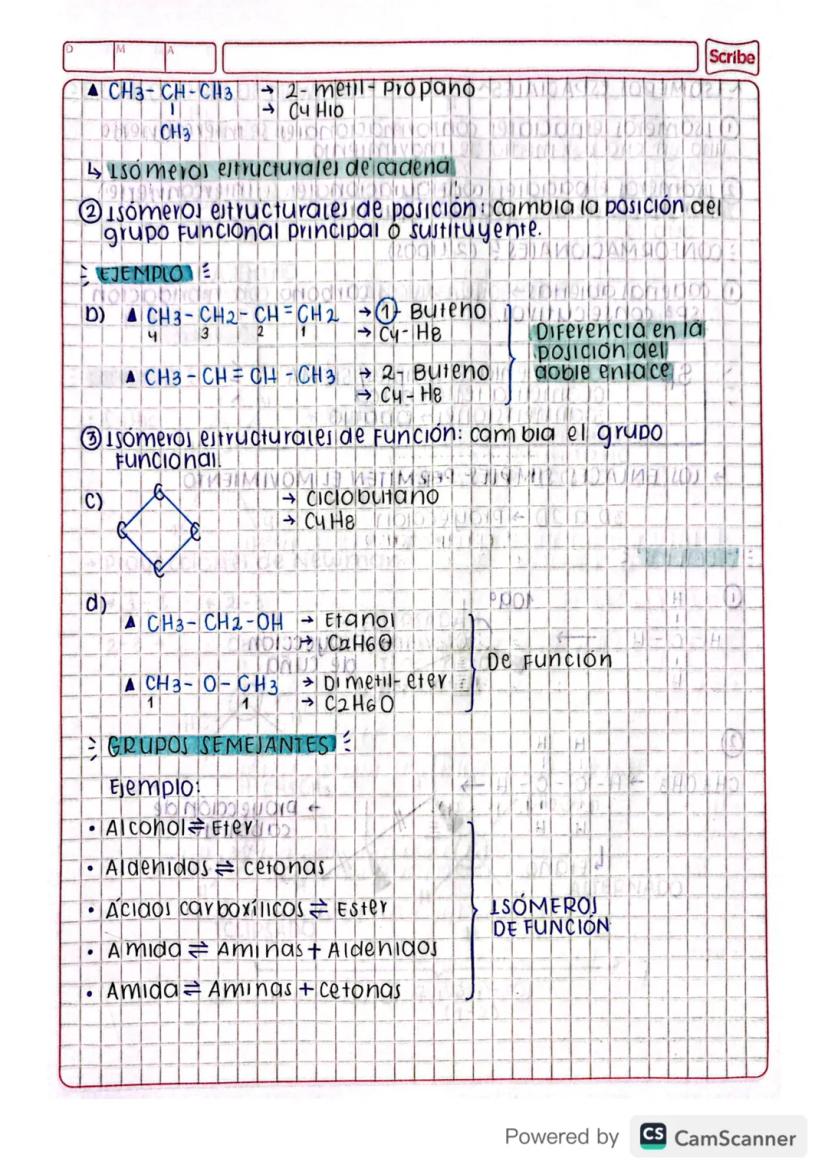 D M A
Scribe
▲ CH3 - CH - CH3 → 2 - metil - Propano
→ C4 H10
CH3
↳ Isómeros estructurales de cadena
② Isómeros estructurales de posición: cambia la posición del
grupo Funcional principal o sustituyente.
EJEMPLO
b) ▲ CH3 - CH2 - CH = CH2 → ① - Buteno
4 3 2 1 → C4 - H8
Diferencia en la
posición del
doble enlace
▲ CH3 - CH = CH - CH3 → 2 - Buteno
→ C4 - H8
③ Isómeros estructurales de Función: cambia el grupo
Funcional.
c) C C C C → Ciclobutano
→ C4 H8
d)
▲ CH3 - CH2 - OH → Etanol
→ C2H6O
▲ CH3 - O - CH3 → Dimetil - eter
1 1 → C2H6O
De Función
GRUPOS SEMEJANTES
Ejemplo:
• Alcohol ⇌ Eter
• Aldehidos ⇌ cetonas
• Ácidos carboxílicos ⇌ Ester
• Amida ⇌ Aminas + Aldehidos
• Amida ⇌ Aminas + cetonas
ISÓMEROS
DE FUNCIÓN
Powered by CS CamScanner